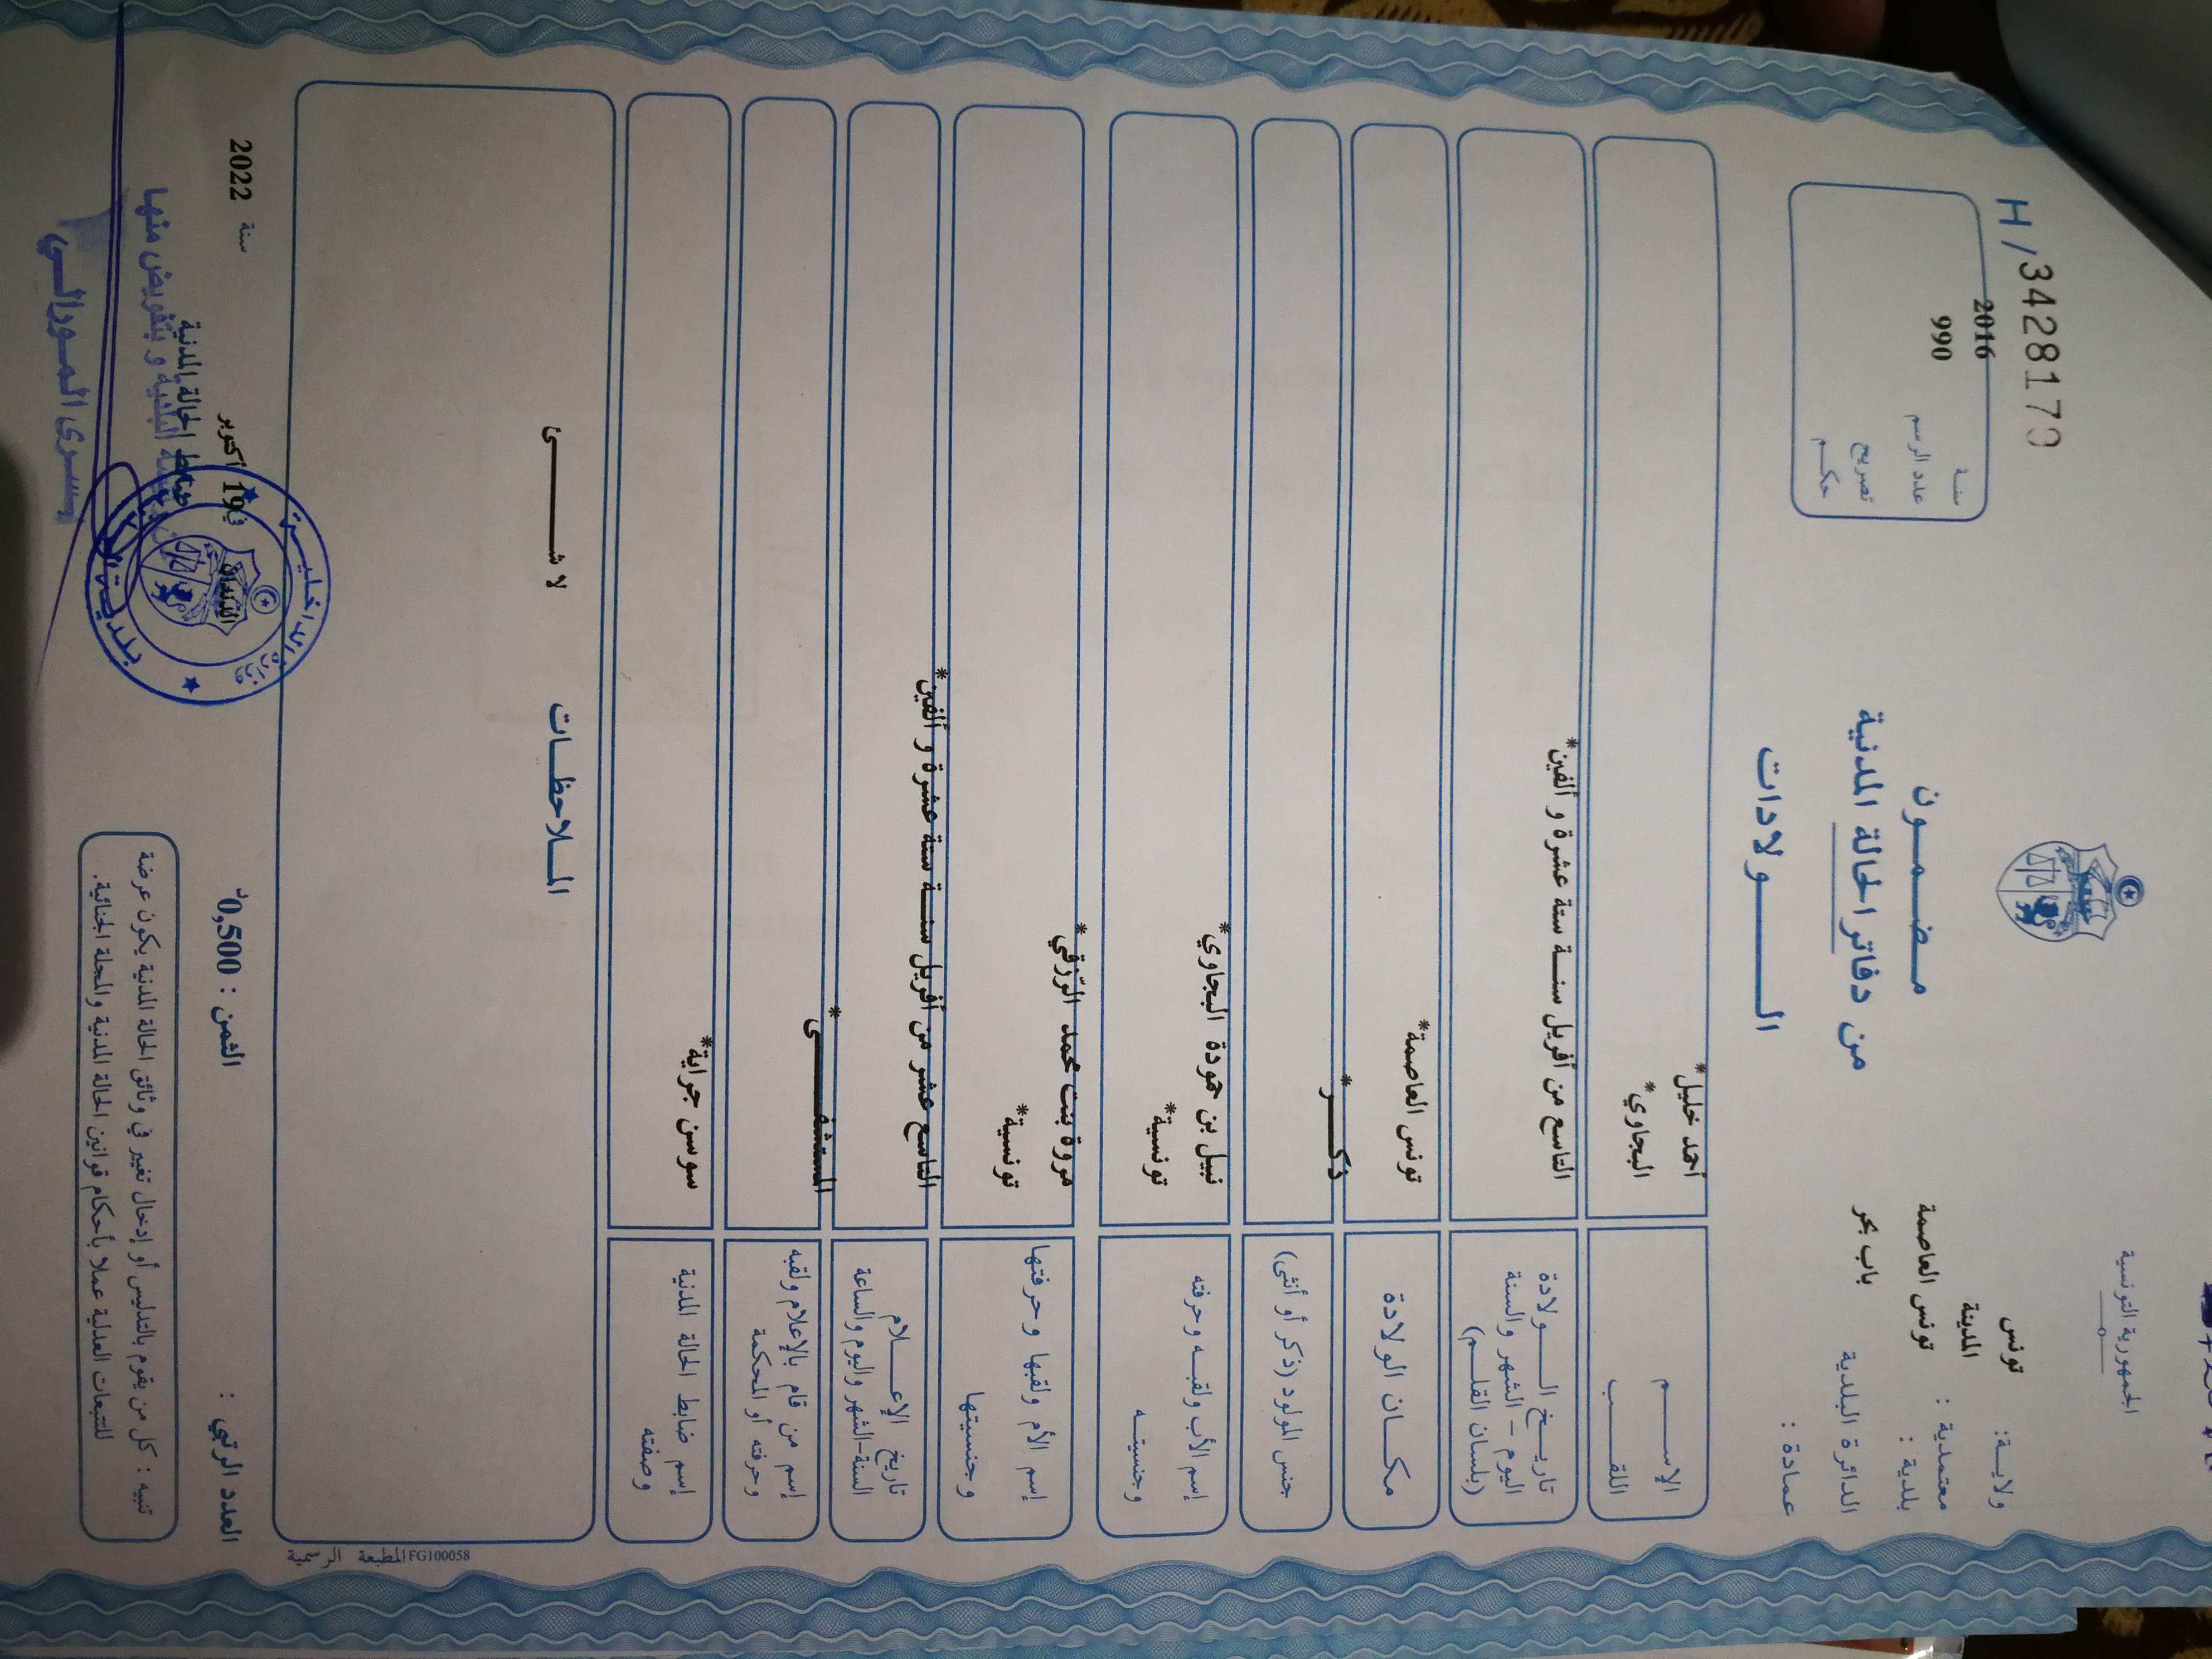 الجمهورية التونسية
H/34281170
ولايـة: تونس
معتمدية : المدينة
بلدية : تونس العاصمة
الدائرة البلدية باب بحر
عمادة :
مـضـمـون
من دفاتر الحالة المدنية
الــولادات
سنـة 2016
عدد الرسم 990
تصريح
حكـم
الإســـم أحمد خليل*
اللقـــب البجاوي*
تاريـخ الــولادة
اليوم – الشهر والسنة
(بلسان القلـم)
التاسع من أفريل سنـــة ستة عشرة و ألفين*
مكـان الولادة تونس العاصمة*
جنس المولود (ذكر أو أنثى) ذكـــر*
إسم الأب ولقبـه وحرفته نبيل بن حمودة البجاوي*
وجنسيتـه تونسية*
إسم الأم ولقبها وحرفتها مروة بنت محمد الرّزقي*
وجنسيتها تونسية*
تاريخ الإعــلام
السنة-الشهر واليوم والساعة
التاسع عشر من أفريل سنـــة ستة عشرة و ألفين*
إسم من قام بالإعلام ولقبه
وحرفته أو المحكمة
المستشفـــى*
إسم ضابط الحالة المدنية
وصفته
سوسن جراية*
المـلاحظـات
لا شـــــئ
المطبعة الرسمية FG100058
العدد الرتبي :
الثمن : 0,500د
في 19 أكتوبر سنة 2022
ضابط الحالة المدنية
و بتفويض منها
يسـرى
وزارة الداخليـة
بلديـة
تنبيه : كل من يقوم بالتدليس أو إدخال تغيير في وثائق الحالة المدنية يكون عرضة
للتتبعات العدلية عملا بأحكام قوانين الحالة المدنية والمجلة الجنائية.